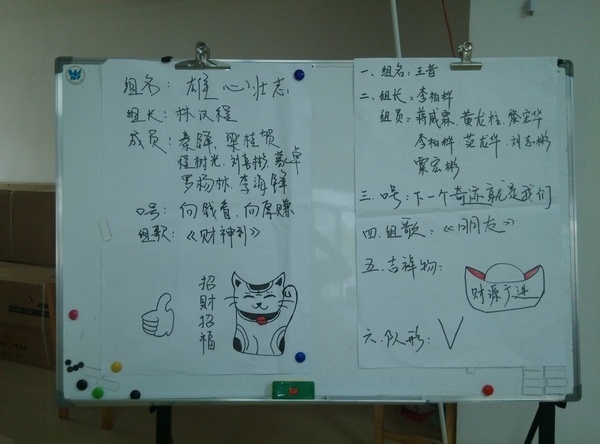 组名: 雄心壮志
组长: 林汉程
成员: 秦锋、梁桂贺
程树光、刘春彬
罗杨林、李海锋
口号: 向钱看、向厚赚
组歌:《财神到》
招财招福
一、组名: 王者
二、组长: 李柏桦
组员: 蒋威霖、黄龙桂
李柏桦 范龙华、刘志彬
覃宏彬
三、口号: 下一个奇迹就是我们
四、组歌:《朋友》
五、吉祥物:
财源广进
六、队形: V